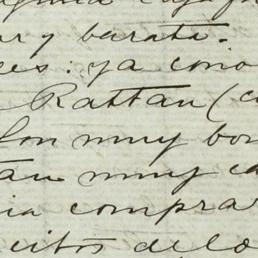 ar y barata.
ces: ya cono
Rattan (c
Son muy bon
tan muy ca
ia compra
citos de lo